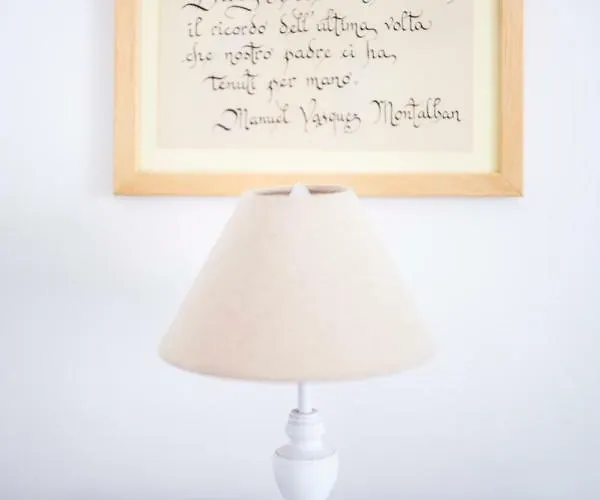 il ricordo dell'ultima volta
che nostro padre ci ha
tenuti per mano.
Manuel Vasquez Montalban